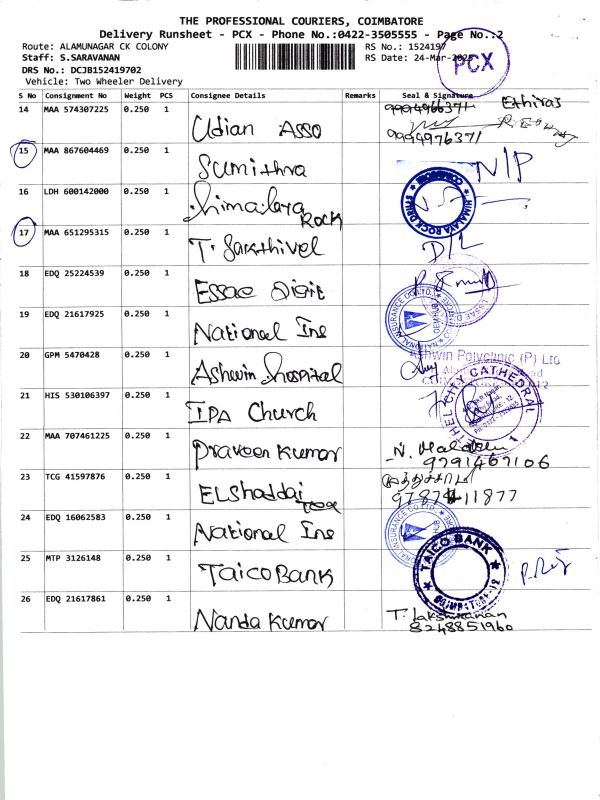 THE PROFESSIONAL COURIERS, COIMBATORE
Delivery Runsheet - PCX - Phone No.:0422-3505555 - Page No.:2
Route: ALAMUNAGAR CK COLONY
RS No.: 1524197
Staff: S.SARAVANAN
RS Date: 24-Mar-2025
PCX
DRS No.: DCJB152419702
Vehicle: Two Wheeler Delivery
S No Consignment No Weight PCS Consignee Details Remarks Seal & Signature
14 MAA 574307225 0.250 1 Udian Asso 9994966371 Ethiraj
9994976371
15 MAA 867604469 0.250 1 Sumithra N/P
16 LDH 600142000 0.250 1 Himalaya Rock
HIMALAYA ROCK DRILLS
17 MAA 651295315 0.250 1 T. Sakthivel D/L
18 EDQ 25224539 0.250 1 Essae Digit
19 EDQ 21617925 0.250 1 National Ins
NATIONAL INSURANCE CO.LTD.
20 GPM 5470428 0.250 1 Ashwin Hospital
Ashwin Polyclinic (P) Ltd
21 HIS 530106397 0.250 1 IPA Church
THEL CITY CATHEDRAL
22 MAA 707461225 0.250 1 Praveen Kumar
9791467106
23 TCG 41597876 0.250 1 ELShaddai Tex
11877
24 EDQ 16062583 0.250 1 National Ins
NATIONAL INSURANCE CO.LTD.
25 MTP 3126148 0.250 1 Taico Bank
TAICO BANK
COIMBATORE-12
26 EDQ 21617861 0.250 1 Nanda Kumar
8248851960